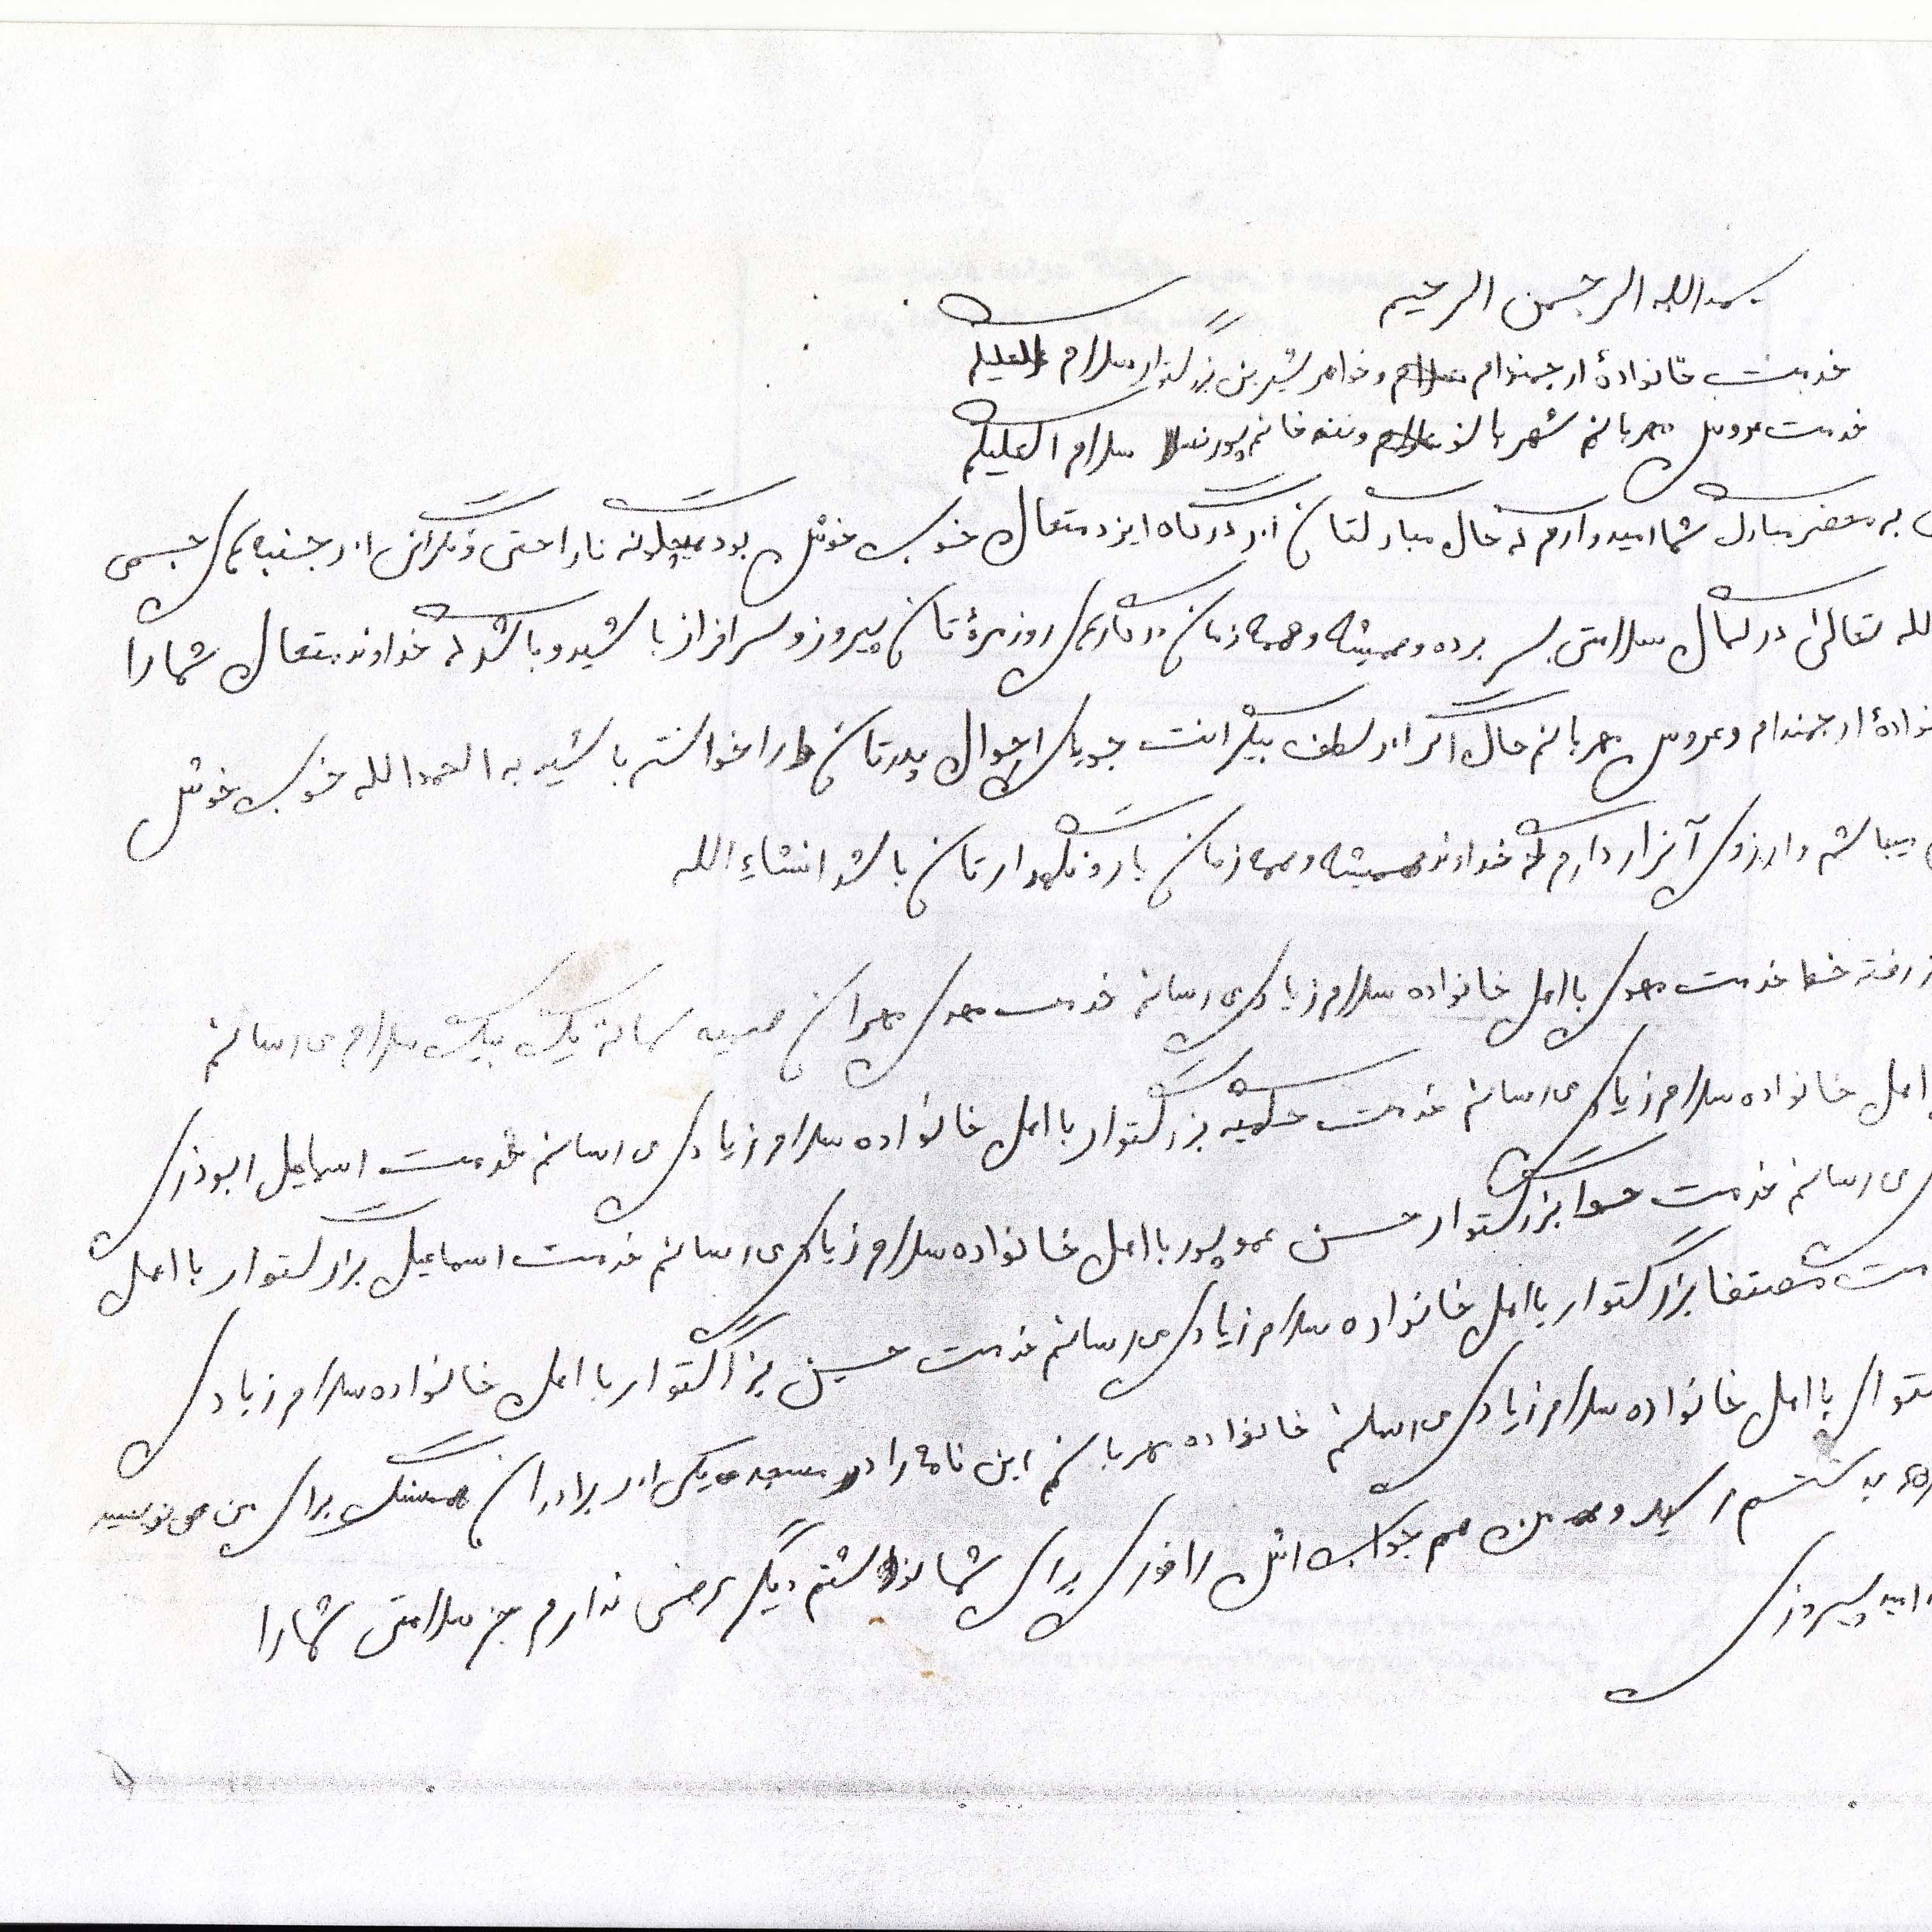 بسم الله الرحمن الرحیم
خدمت خانوادهٔ ارجمندام و خواهر شیرین بزرگوار سلام العلیکم
خدمت عروس مهربانم شهربانو و ننه خانم پورنسا سلام العلیکم
به محضر مبارک شما امیدوارم که حال مبارکتان از درگاه ایزد متعال خوب خوش بود هیچگونه ناراحتی و نگرانی از جنبه‌های جسمی
الله تعالی در کمال سلامتی بسر برده و همیشه و همه زمان در کارهای روزمرهٔ تان پیروز و سرافراز باشید و باشد که خداوند متعال شما را
ارجمندام و عروس مهربانم حال اگر از لطف بیکرانت جویای احوال پدرتان را خواسته باشید به الحمدالله خوب خوش
میباشم و ارزوی آنرار دارم که خداوند همیشه و همه زمان یار و نگهدارتان باشد انشاءالله
رفته خدمت مهدی با اهل خانواده سلام زیادی می رسانم خدمت مهدی یک بیک سلام می رسانم
اهل خانواده سلام زیادی می رسانم خدمت حکمیه بزرگتوار با اهل خانواده سلام زیادی می رسانم خدمت اسمایل ابوذری
می رسانم خدمت حوا بزرگتوار حسن عموپور با اهل خانواده سلام زیادی می رسانم خدمت اسماعیل بزارگتوار با اهل
مصتفا بزارگتوار با اهل خانواده سلام زیادی می رسانم خدمت حسین بزارگتوار با اهل خانواده سلام زیادی
با اهل خانواده سلام زیادی می رسانم خانواده مهربانم این نامه را در مسجد یکی از برادران برای من می نویسید
به دستم رسید و من هم جواب اش را فوری برای شما نواشتم دیگر عرضی ندارم جز سلامتی شما را
امید پیروزی